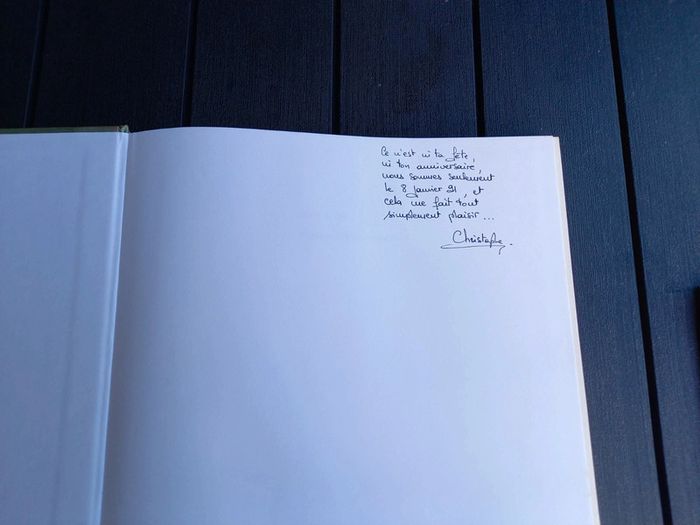 Ce n'est ni ta fête,
ni ton anniversaire,
nous sommes seulement
le 8 janvier 91, et
cela me fait tout
simplement plaisir...
Christophe.